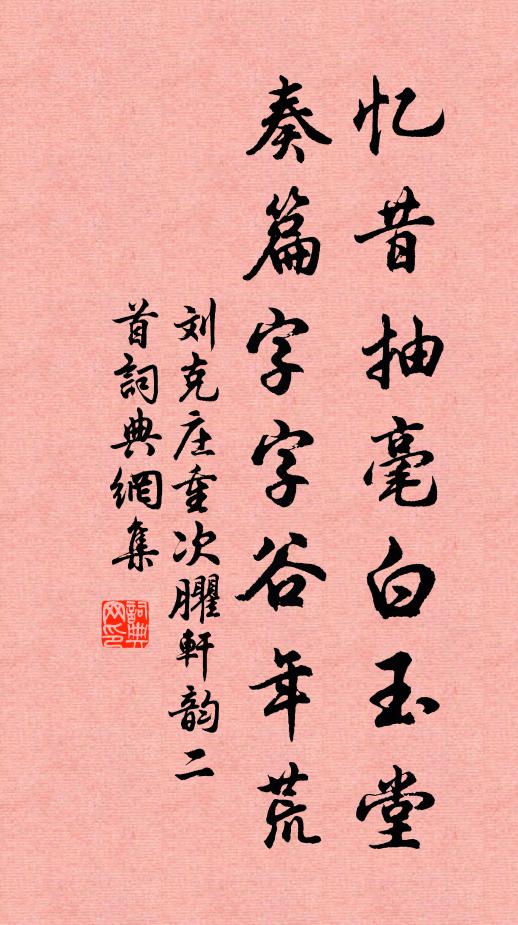 忆昔抽毫白玉堂
奏篇字字谷年荒
刘克庄重次臞軒韵二
首詞典網集
詞典
网印